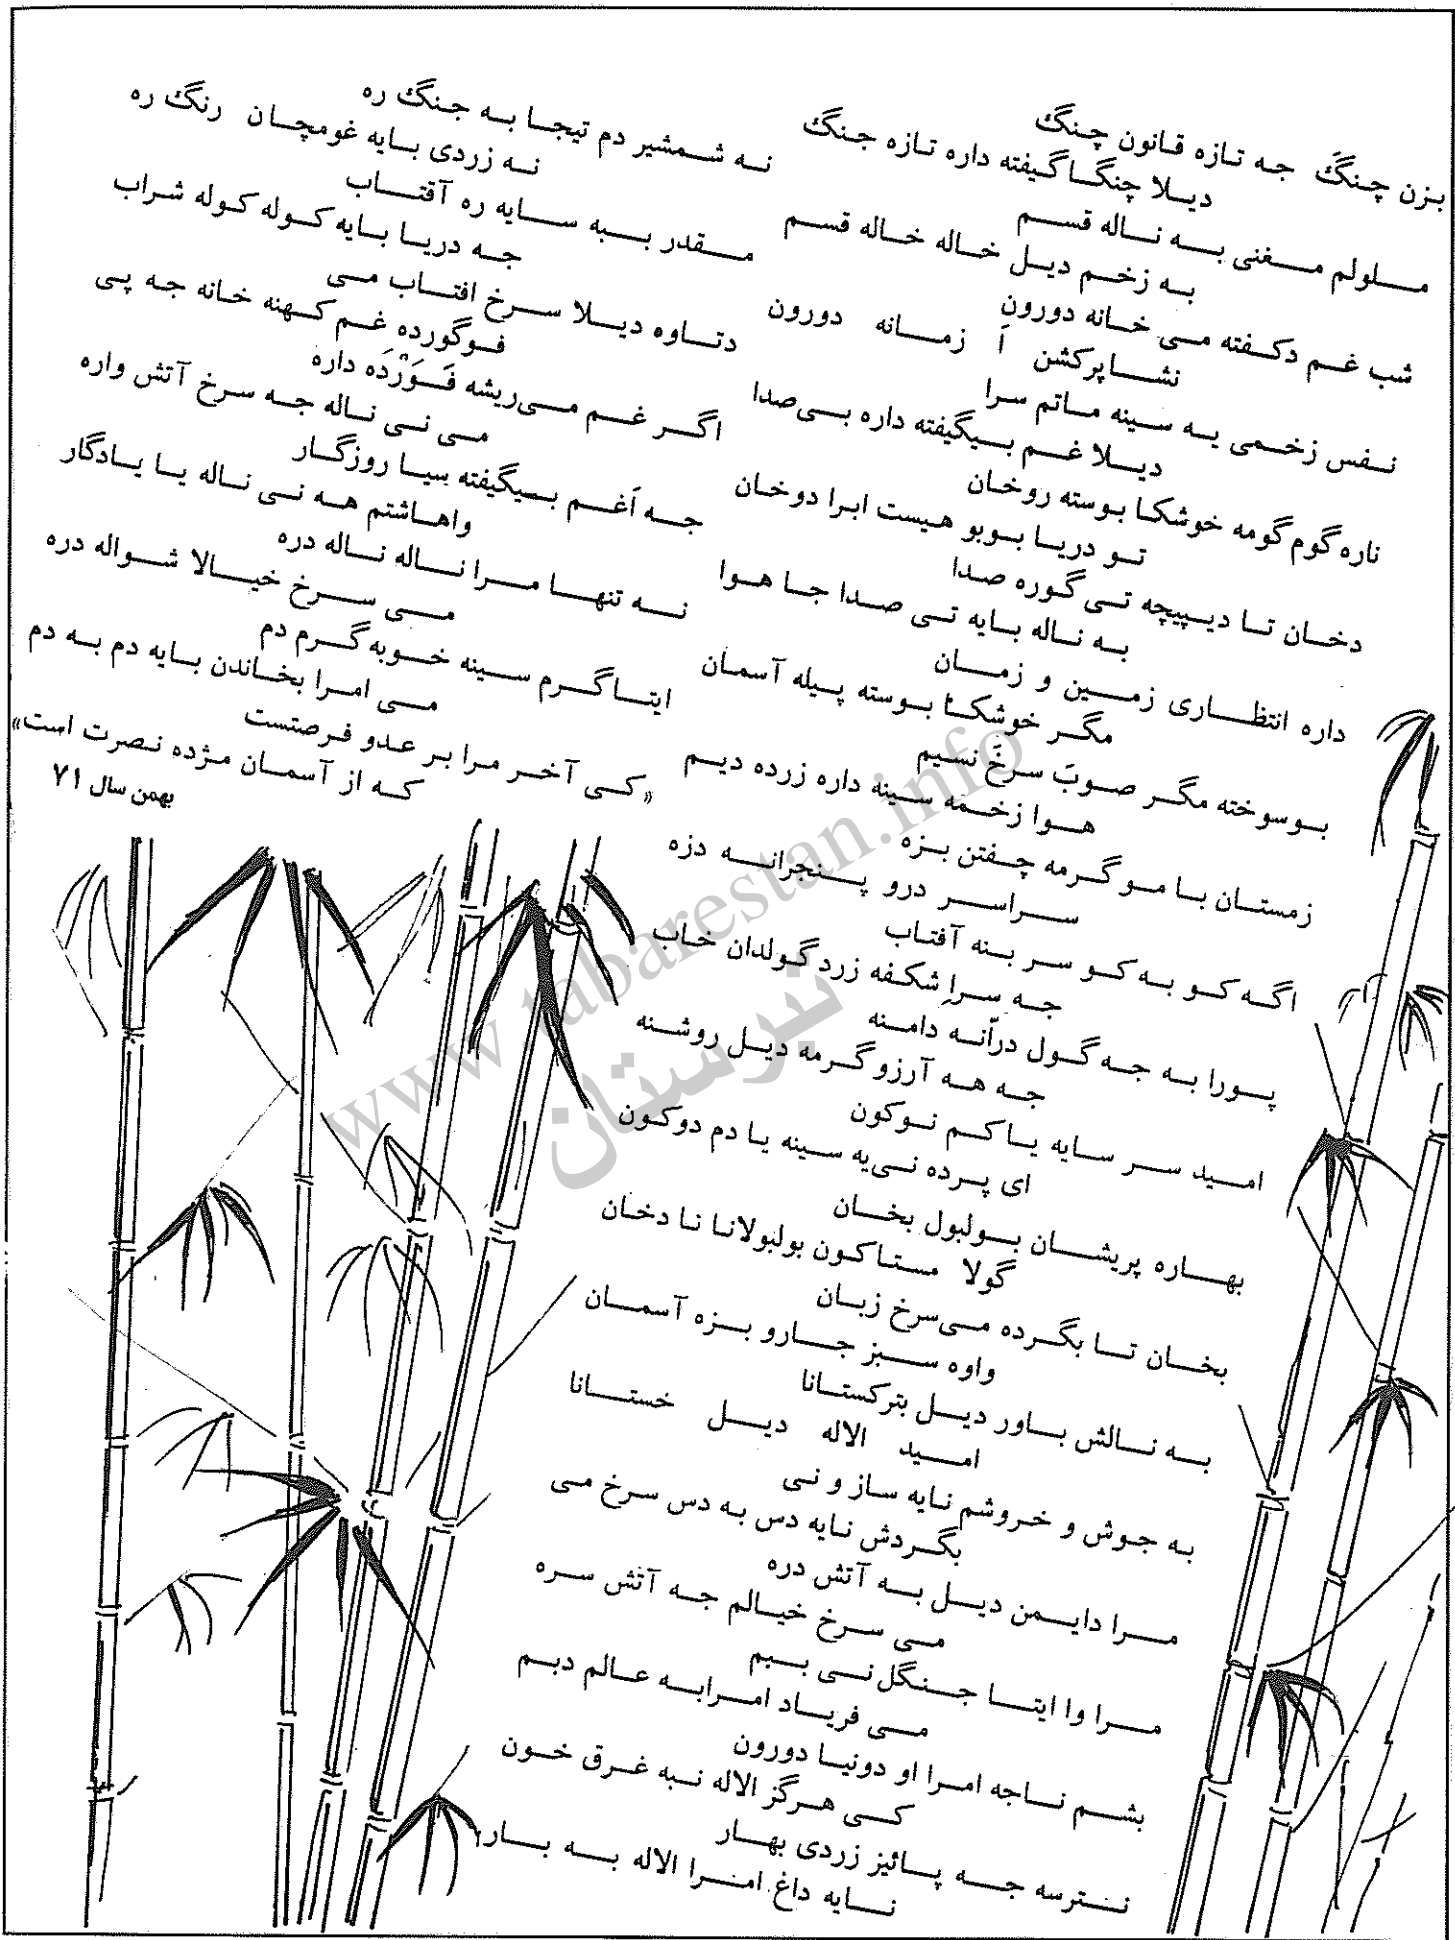 بزن چنگَ جه تازه قانون چنگ
دیلا چنگا گیفته داره تازه جنگ
ملولم مغنی به ناله قسم
به زخم دیل خاله خاله قسم
شب غم دکفته می خانه دورون
نشاپرکشن اَ زمانه دورون
نفس زخمی یه سینه ماتم سرا
دیلا غم بیگیفته داره بی‌صدا
ناره گوم گومه خوشکا بوسته روخان
تو دریا بوبو هیست ابرا دوخان
دخان تا دیپیچه تی گوره صدا
به ناله بایه تی صدا جا هوا
داره انتظاری زمین و زمان
مگر خوشکأ بوسته پیله آسمان
بوسوخته مگر صوبَ سرخَ نسیم
هوا زخمه سینه داره زرده دیم
زمستان با مو گرمه چفتن بزه
سراسر درو پنجرانه دزه
اگه کو به کو سر بنه آفتاب
جه سراِ شکفه زرد گولدان خاب
پورا به جه گول درّانه دامنه
جه هه آرزو گرمه دیل روشنه
امید سر سایه یا کم نوکون
ای پرده نی‌یه سینه یا دم دوکون
بهاره پریشان بولبول بخان
گولا مستاکون بولبولانا نا دخان
بخان تا بگرده می‌سرخ زبان
واوه سبز جارو بزه آسمان
به نالش باور دیل بترکستانا
امید الاله دیل خستانا
به جوش و خروشم نایه ساز و نی
بگردش نایه دس به دس سرخ می
مرا دایمن دیل به آتش دره
می سرخ خیالم جه آتش سره
مرا وا ایتا جنگل نی ببم
می فریاد امرا به عالم دبم
بشم ناجه امرا او دونیا دورون
کی هرگز الاله نبه غرق خون
نترسه جه پائیز زردی بهار
نایه داغ امرا الاله به بار
نه شمشیر دم تیجا به جنگ ره
نه زردی بایه غومچان رنگ ره
مقدر ببه سایه ره آفتاب
جه دریا بایه کوله کوله شراب
دتاوه دیلا سرخ افتاب می
فوگورده غم کهنه خانه جه پی
اگر غم می‌ریشه فَوَزْدَه داره
می نی ناله جه سرخ آتش واره
جه اَغم بیگیفته سیا روزگار
واهاشتم هه نی ناله یا یادگار
نه تنها مرا ناله ناله دره
می سرخ خیالا شواله دره
ایتا گرم سینه خوبه گرم دم
می امرا بخاندن بایه دم به دم
«کی آخر مرا بر عدو فرصتست
که از آسمان مژده نصرت است»
بهمن سال ۷۱
www.tabarestan.info
تبرستان